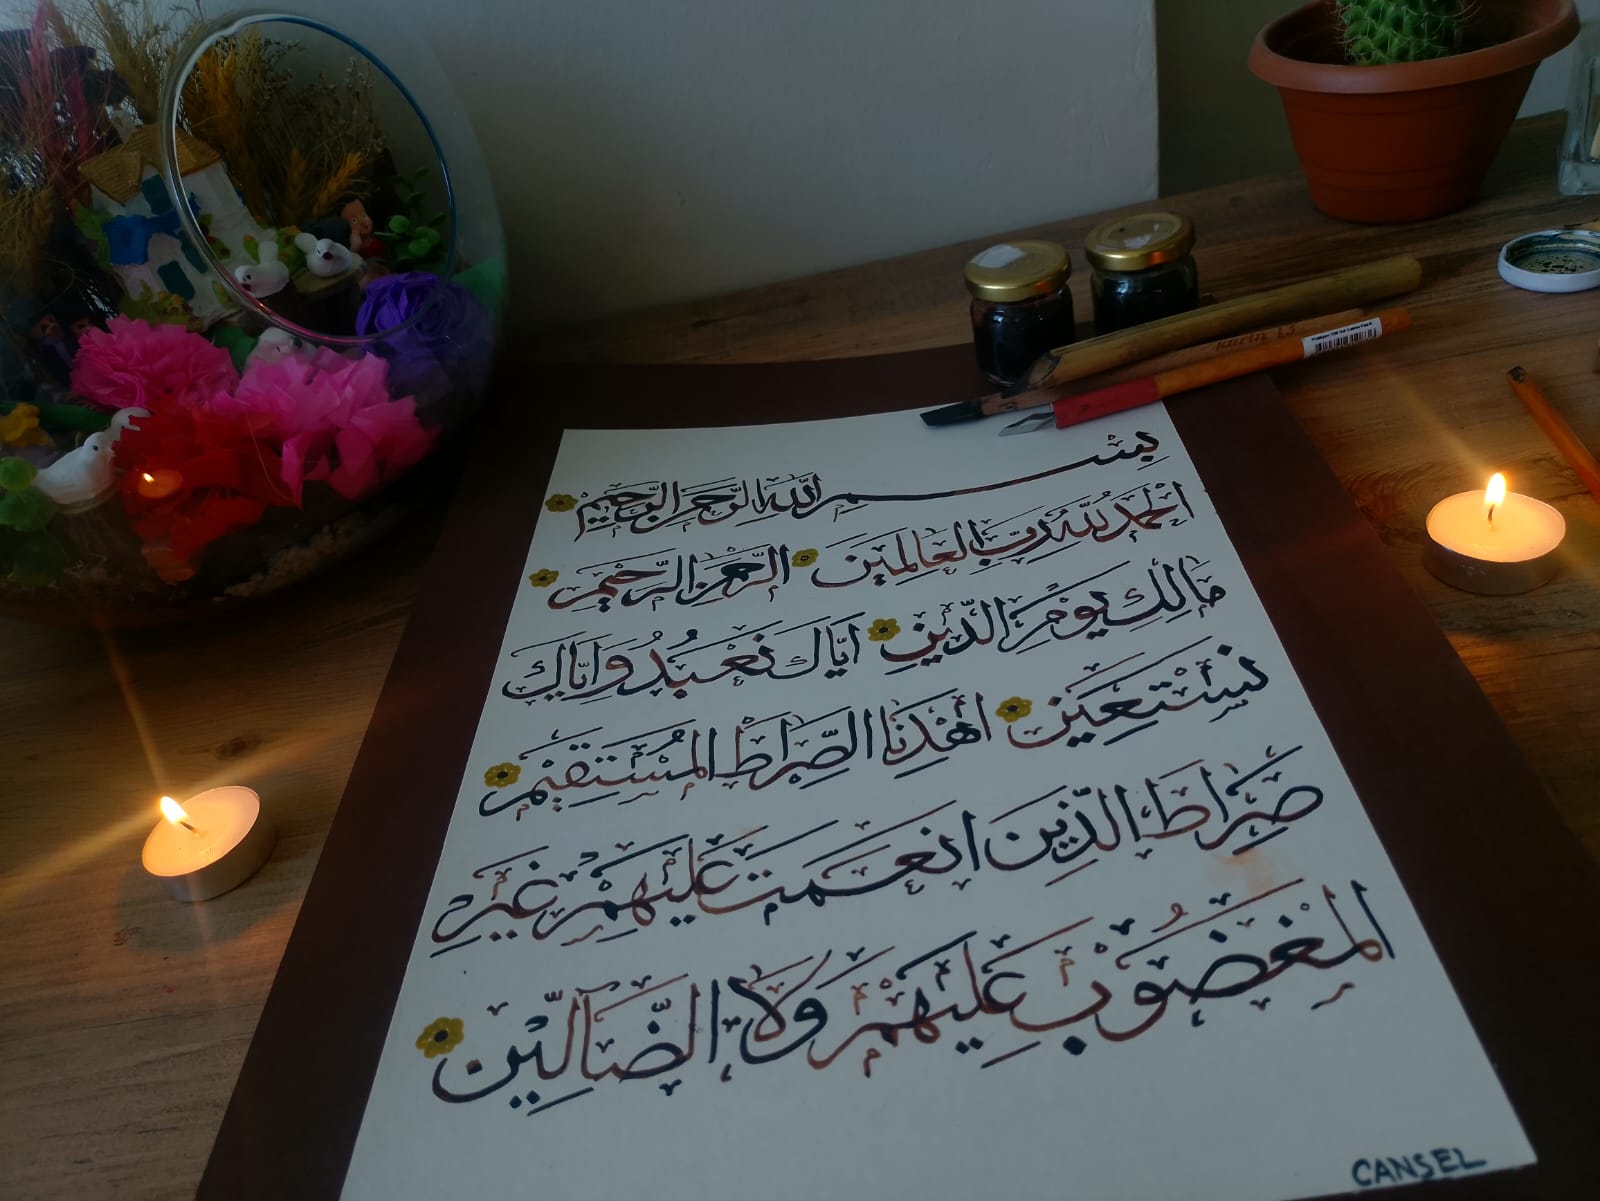 بِسْمِ اللهِ الرَّحْمٰنِ الرَّحِيمِ
اَلْحَمْدُ لِلّٰهِ رَبِّ الْعَالَمِينَ الرَّحْمٰنِ الرَّحِيمِ
مَالِكِ يَوْمِ الدِّينِ اِيَّاكَ نَعْبُدُ وَاِيَّاكَ
نَسْتَعِينُ اِهْدِنَا الصِّرَاطَ الْمُسْتَقِيمَ
صِرَاطَ الَّذِينَ اَنْعَمْتَ عَلَيْهِمْ غَيْرِ
الْمَغْضُوبِ عَلَيْهِمْ وَلَا الضَّٓالِّينَ
CANSEL